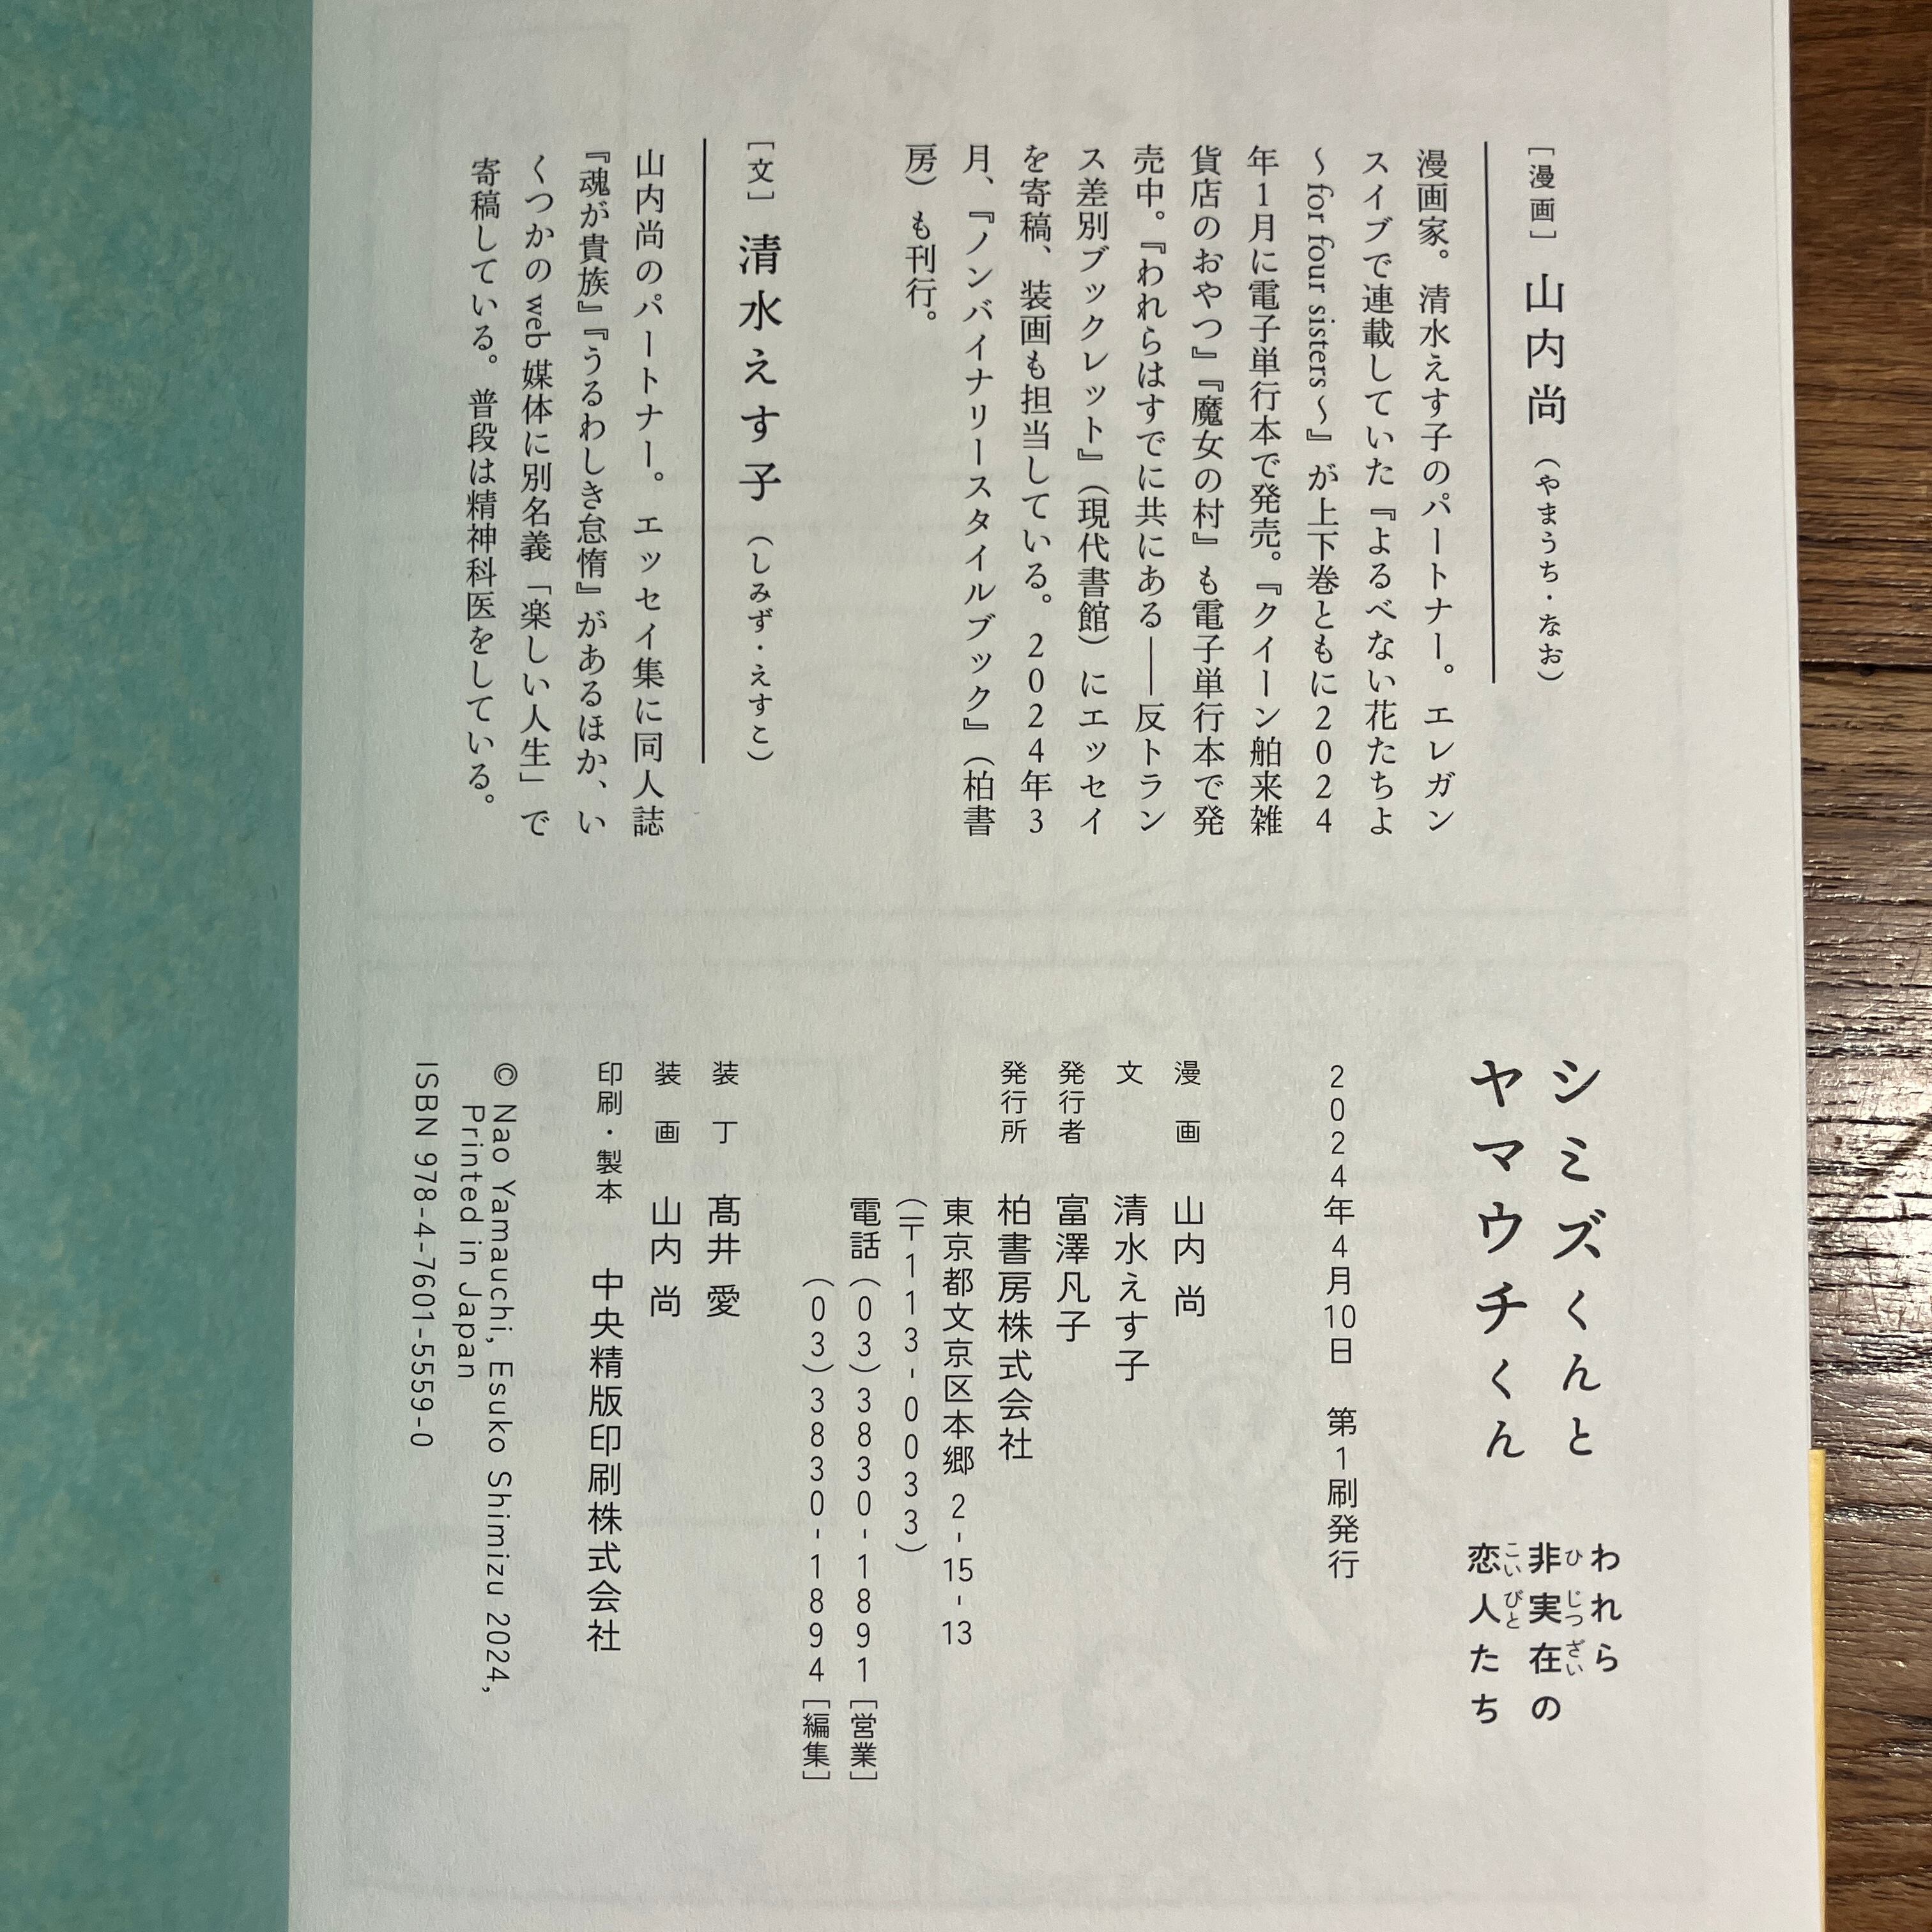 ［漫画］山内尚（やまうち・なお）
漫画家。清水えす子のパートナー。エレガン
スイブで連載していた『よるべない花たちよ
～for four sisters～』が上下巻ともに2024
年1月に電子単行本で発売。『クイーン舶来雑
貨店のおやつ』『魔女の村』も電子単行本で発
売中。『われらはすでに共にある──反トラン
ス差別ブックレット』（現代書館）にエッセイ
を寄稿、装画も担当している。2024年3
月、『ノンバイナリースタイルブック』（柏書
房）も刊行。
［文］清水えす子（しみず・えすこ）
山内尚のパートナー。エッセイ集に同人誌
『魂が貴族』『うるわしき怠惰』があるほか、い
くつかのweb媒体に別名義「楽しい人生」で
寄稿している。普段は精神科医をしている。
シミズくんと
ヤマウチくん
われら
非実在の
ひじつざい
恋人たち
こいびと
2024年4月10日　第1刷発行
漫画　山内 尚
文　清水えす子
発行者　富澤凡子
発行所　柏書房株式会社
東京都文京区本郷 2-15-13
（〒113-0033）
電話（03）3830-1891［営業］
（03）3830-1894［編集］
装丁　髙井 愛
装画　山内 尚
印刷・製本　中央精版印刷株式会社
© Nao Yamauchi, Esuko Shimizu 2024,
Printed in Japan
ISBN 978-4-7601-5559-0